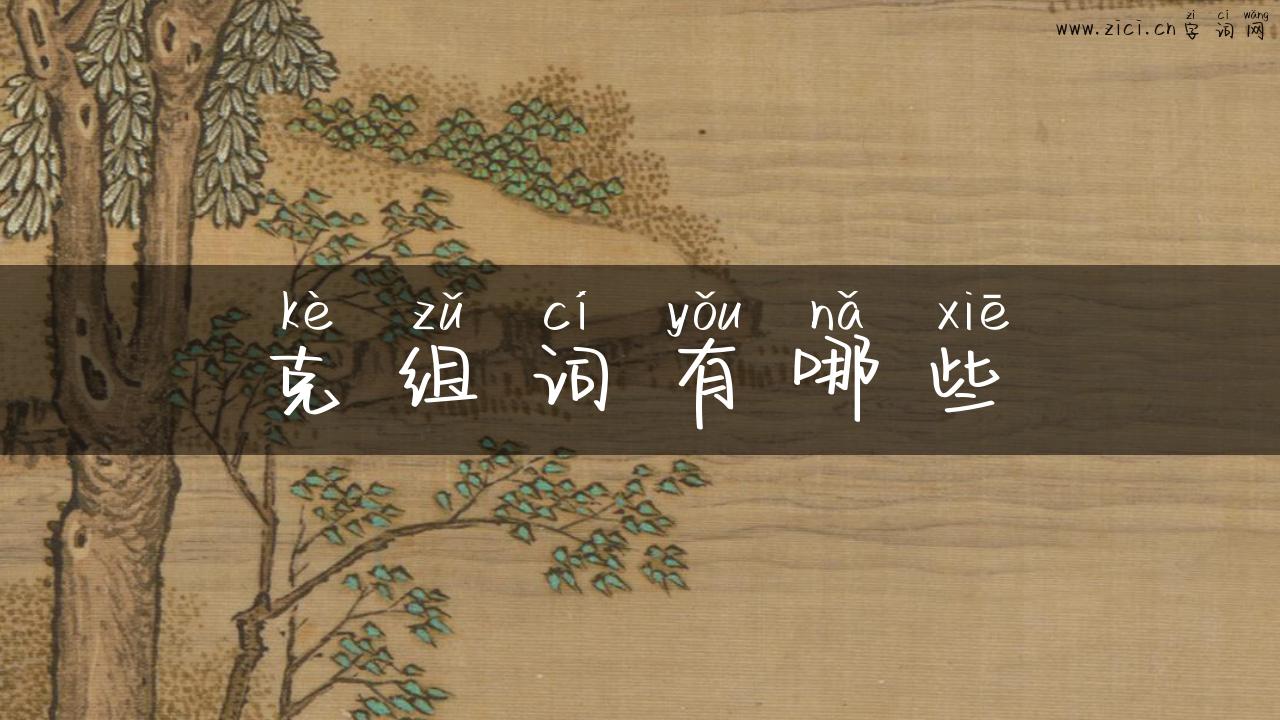 zì cí wǎng
www.zici.cn 字词网
kè zǔ cí yǒu nǎ xiē
克组词有哪些